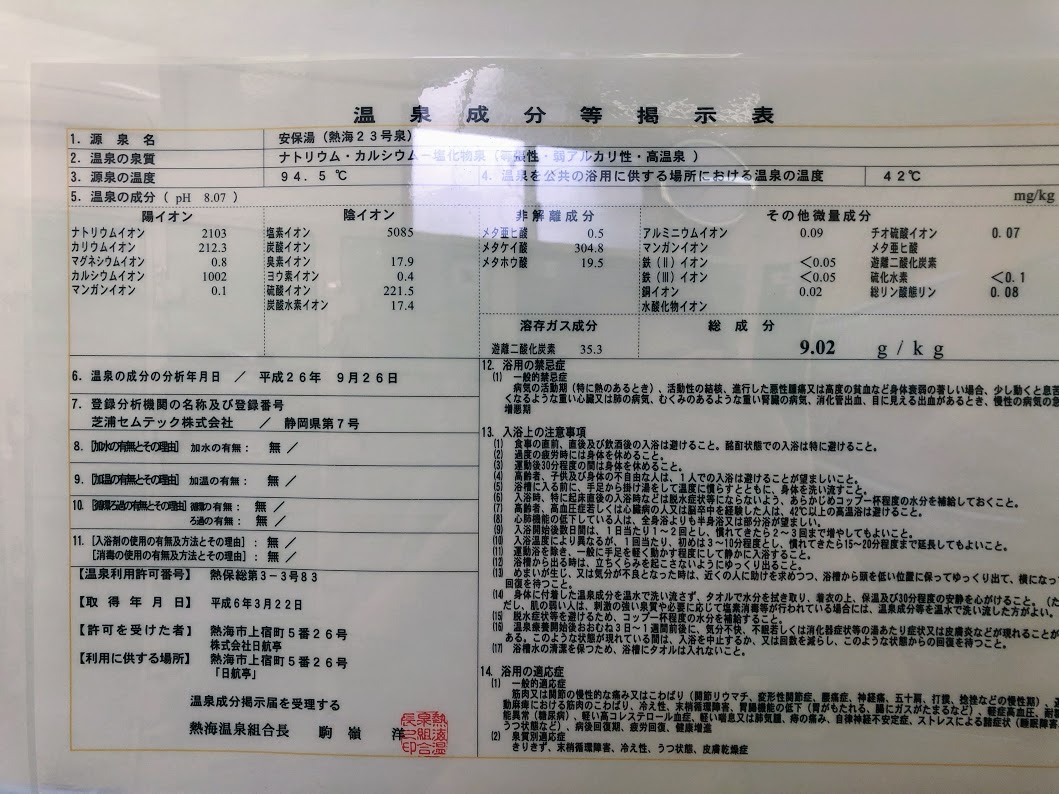 温泉成分等掲示表
1. 源泉名 安保湯(熱海23号泉)
2. 温泉の泉質 ナトリウム・カルシウム－塩化物泉(等張性・弱アルカリ性・高温泉)
3. 源泉の温度 94.5℃ 4. 温泉を公共の浴用に供する場所における温泉の温度 42℃
5. 温泉の成分( pH 8.07 ) mg/kg
陽イオン
ナトリウムイオン 2103
カリウムイオン 212.3
マグネシウムイオン 0.8
カルシウムイオン 1002
マンガンイオン 0.1
陰イオン
塩素イオン 5085
炭酸イオン
臭素イオン 17.9
ヨウ素イオン 0.4
硫酸イオン 221.5
炭酸水素イオン 17.4
非解離成分
メタ亜ヒ酸 0.5
メタケイ酸 304.8
メタホウ酸 19.5
その他微量成分
アルミニウムイオン 0.09 チオ硫酸イオン 0.07
マンガンイオン メタ亜ヒ酸
鉄(Ⅱ)イオン <0.05 遊離二酸化炭素
鉄(Ⅲ)イオン <0.05 硫化水素 <0.1
銅イオン 0.02 総リン酸態リン 0.08
水酸化物イオン
溶存ガス成分
遊離二酸化炭素 35.3
総成分
9.02 g/kg
6. 温泉の成分の分析年月日 ／ 平成26年 9月26日
7. 登録分析機関の名称及び登録番号
芝浦セムテック株式会社 ／ 静岡県第7号
8. [加水の有無とその理由] 加水の有無： 無 ／
9. [加温の有無とその理由] 加温の有無： 無 ／
10. [循環ろ過の有無とその理由] 循環の有無： 無 ／
ろ過の有無： 無 ／
11. [入浴剤の使用の有無及方法とその理由]： 無 ／
[消毒の使用の有無及方法とその理由]： 無 ／
【温泉利用許可番号】 熱保総第3－3号83
【取得年月日】 平成6年3月22日
【許可を受けた者】 熱海市上宿町5番26号
株式会社日航亭
【利用に供する場所】 熱海市上宿町5番26号
「日航亭」
温泉成分掲示届を受理する
熱海温泉組合長 駒嶺 洋
12. 浴用の禁忌症
(1) 一般的禁忌症
病気の活動期(特に熱のあるとき)、活動性の結核、進行した悪性腫瘍又は高度の貧血など身体衰弱の著しい場合、少し動くと息苦
くなるような重い心臓又は肺の病気、むくみのあるような重い腎臓の病気、消化管出血、目に見える出血があるとき、慢性の病気の急
増悪期
13. 入浴上の注意事項
(1) 食事の直前、直後及び飲酒後の入浴は避けること。酩酊状態での入浴は特に避けること。
(2) 過度の疲労時には身体を休めること。
(3) 運動後30分程度の間は身体を休めること。
(4) 高齢者、子供及び身体の不自由な人は、1人での入浴は避けることが望ましいこと。
(5) 浴槽に入る前に、手足から掛け湯をして温度に慣らすとともに、身体を洗い流すこと。
(6) 入浴時、特に起床直後の入浴時などは脱水症状等にならないよう、あらかじめコップ一杯程度の水分を補給しておくこと。
(7) 高齢者、高血圧症若しくは心臓病の人又は脳卒中を経験した人は、42℃以上の高温浴は避けること。
(8) 心肺機能の低下している人は、全身浴よりも半身浴又は部分浴が望ましい。
(9) 入浴開始後数日間は、1日当たり1～2回とし、慣れてきたら2～3回まで増やしてもよいこと。
(10) 入浴温度により異なるが、1回当たり、初めは3～10分程度とし、慣れてきたら15～20分程度まで延長してもよいこと。
(11) 運動浴を除き、一般に手足を軽く動かす程度にして静かに入浴すること。
(12) 浴槽から出る時は、立ちくらみを起こさないようにゆっくり出ること。
(13) めまいが生じ、又は気分が不良となった時は、近くの人に助けを求めつつ、浴槽から頭を低い位置に保ってゆっくり出て、横になって
回復を待つこと。
(14) 身体に付着した温泉成分を温水で洗い流さず、タオルで水分を拭き取り、着衣の上、保温及び30分程度の安静を心がけること。(た
だし、肌の弱い人は、刺激の強い泉質や必要に応じて塩素消毒等が行われている場合には、温泉成分等を温水で洗い流した方がよい。
(15) 脱水症状等を避けるため、コップ一杯程度の水分を補給すること。
(16) 温泉療養開始後おおむね3日～1週間前後に、気分不快、不眠若しくは消化器症状等の湯あたり症状又は皮膚炎などが現れることが
ある。このような状態が現れている間は、入浴を中止するか、又は回数を減らし、このような状態からの回復を待つこと。
(17) 浴槽水の清潔を保つため、浴槽にタオルは入れないこと。
14. 浴用の適応症
(1) 一般的適応症
筋肉又は関節の慢性的な痛み又はこわばり(関節リウマチ、変形性関節症、腰痛症、神経痛、五十肩、打撲、捻挫などの慢性期)、運
動麻痺における筋肉のこわばり、冷え性、末梢循環障害、胃腸機能の低下(胃がもたれる、腸にガスがたまるなど)、軽症高血圧、耐糖
能異常(糖尿病)、軽い高コレステロール血症、軽い喘息又は肺気腫、痔の痛み、自律神経不安定症、ストレスによる諸症状(睡眠障害
うつ状態など)、病後回復期、疲労回復、健康増進
(2) 泉質別適応症
きりきず、末梢循環障害、冷え性、うつ状態、皮膚乾燥症